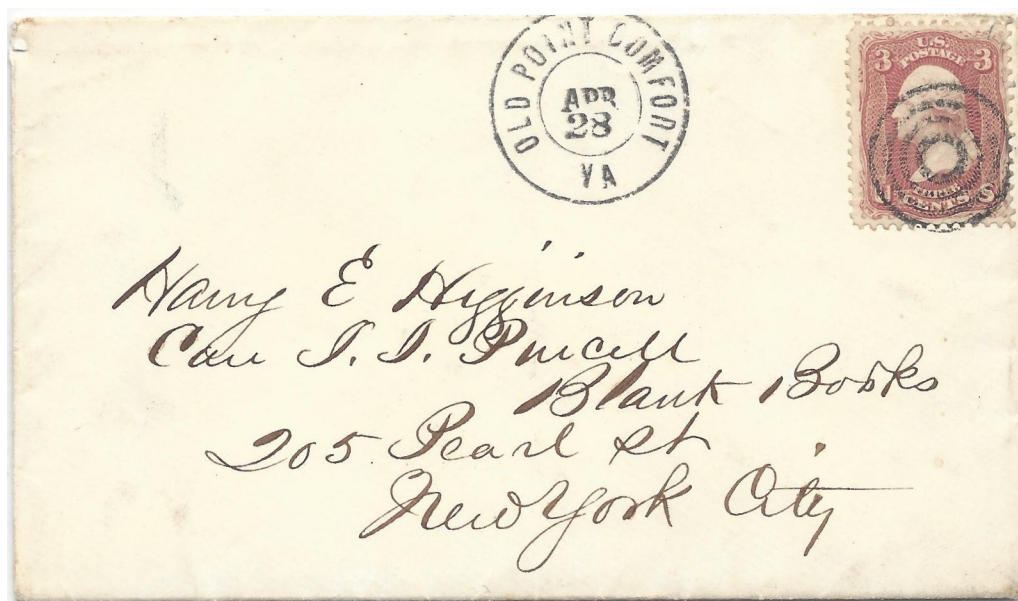 OLD POINT COMFORT
APR
28
VA
U.S.
POSTAGE
3 3
THREE
CENTS
Harry E Higginson
Care I. I. Purcell
Blank Books
205 Pearl St
New York City